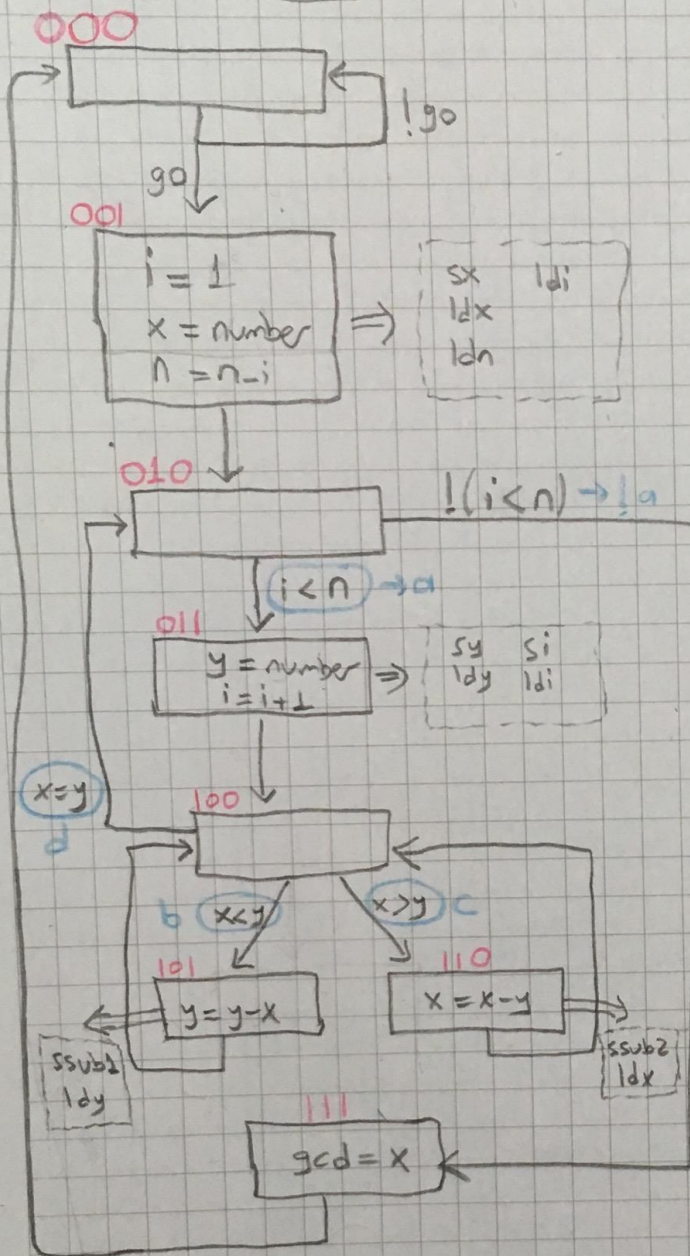 000
!go
go
001
i = 1
x = number
n = n-i
⇒
sx ldi
ldx
ldn
010
!(i<n) → !a
i<n → a
011
y = number
i = i+1
⇒
sy si
ldy ldi
x=y
d
100
b x<y
x>y c
101
y = y-x
110
x = x-y
ssub1
ldy
ssub2
ldx
111
gcd = x